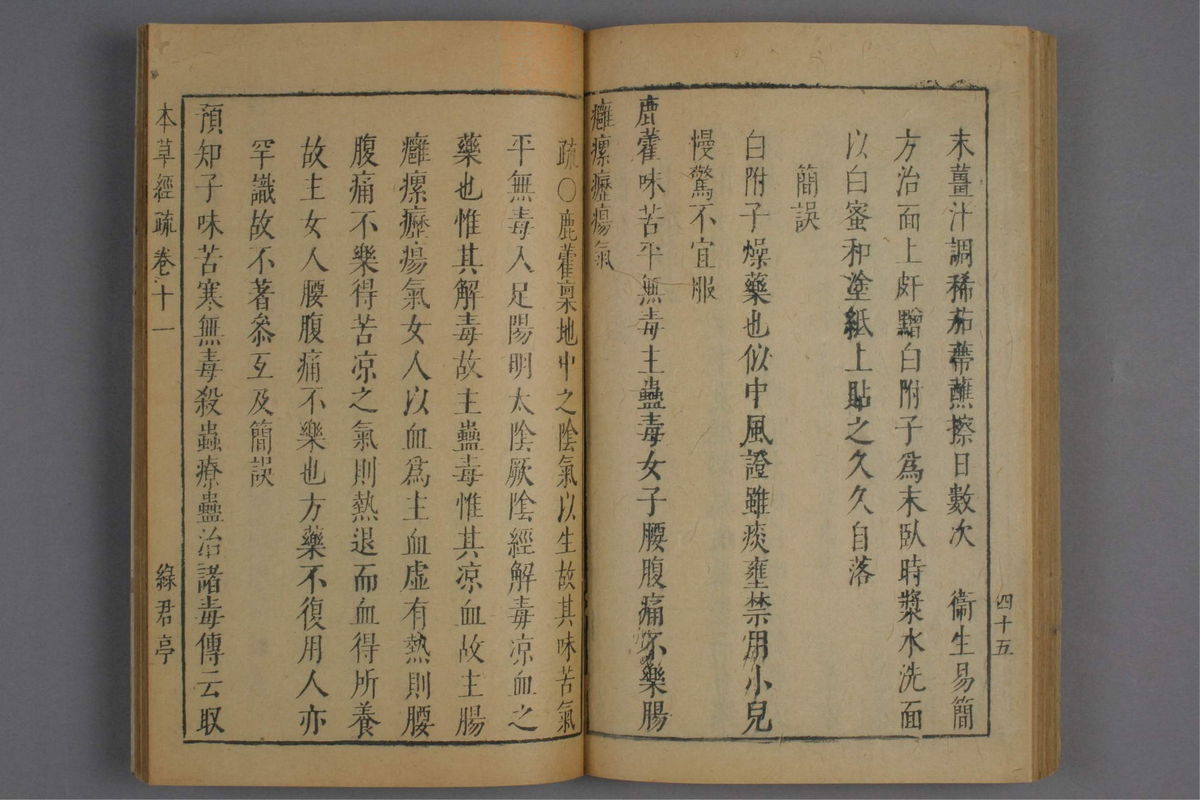 四十五
末薑汁調稀茄蔕蘸擦日數次　衞生易簡
方治面上皯䵴白附子爲末臥時漿水洗面
以白蜜和塗紙上貼之久久自落
簡誤
白附子燥藥也似中風證雖痰壅禁用小兒
慢驚不宜服
鹿藿味苦平無毒主蠱毒女子腰腹痛不樂腸
癰瘰癧瘍氣
疏〇鹿藿稟地中之陰氣以生故其味苦氣
平無毒入足陽明太陰厥陰經解毒凉血之
藥也惟其解毒故主蠱毒惟其凉血故主腸
癰瘰癧瘍氣女人以血爲主血虛有熱則腰
腹痛不樂得苦凉之氣則熱退而血得所養
故主女人腰腹痛不樂也方藥不復用人亦
罕識故不著叅互及簡誤
預知子味苦寒無毒殺蟲療蠱治諸毒傳云取
本草經疏卷十一
綠君亭